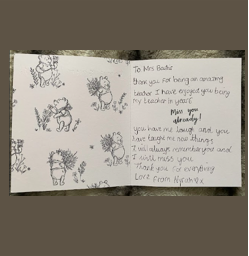 To Mrs
thank you for being an amazing
teacher I have enjoyed you being
my teacher in year 5
Miss you
already!
You have me laugh and you
have taught me new things
I will always remember you and
I will miss you
Thank you for everything
Love From